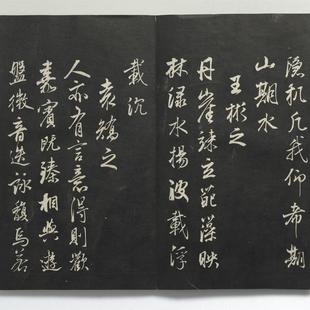 隱机凡我仰希期
山期水
王彬之
丹崖竦立葩藻映
林渌水揚波載浮
載沉
袁嶠之
人亦有言意得則歡
嘉賓既臻相與遊
盤微音迭詠馥焉若